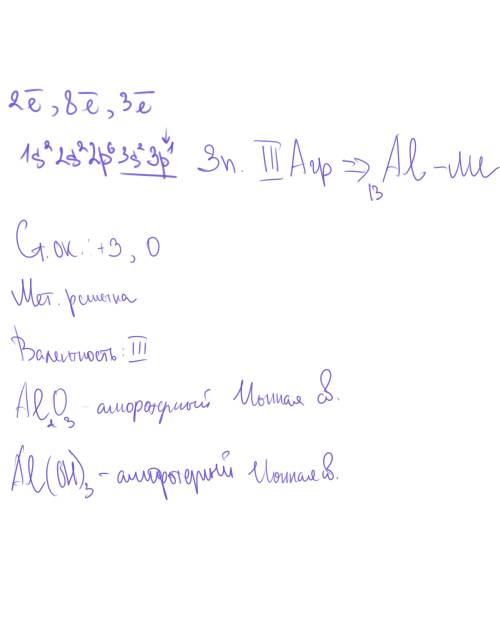 2ē, 8ē, 3ē
1s² 2s² 2p⁶ 3s² 3p¹ 3п. III A гр ⇒ ₁₃Al - Me
Ст. ок.: +3, 0
Мет. решетка
Валентность: III
Al₂O₃ - аморфный Ионная св.
Al(OH)₃ - амфотерный Ионная св.